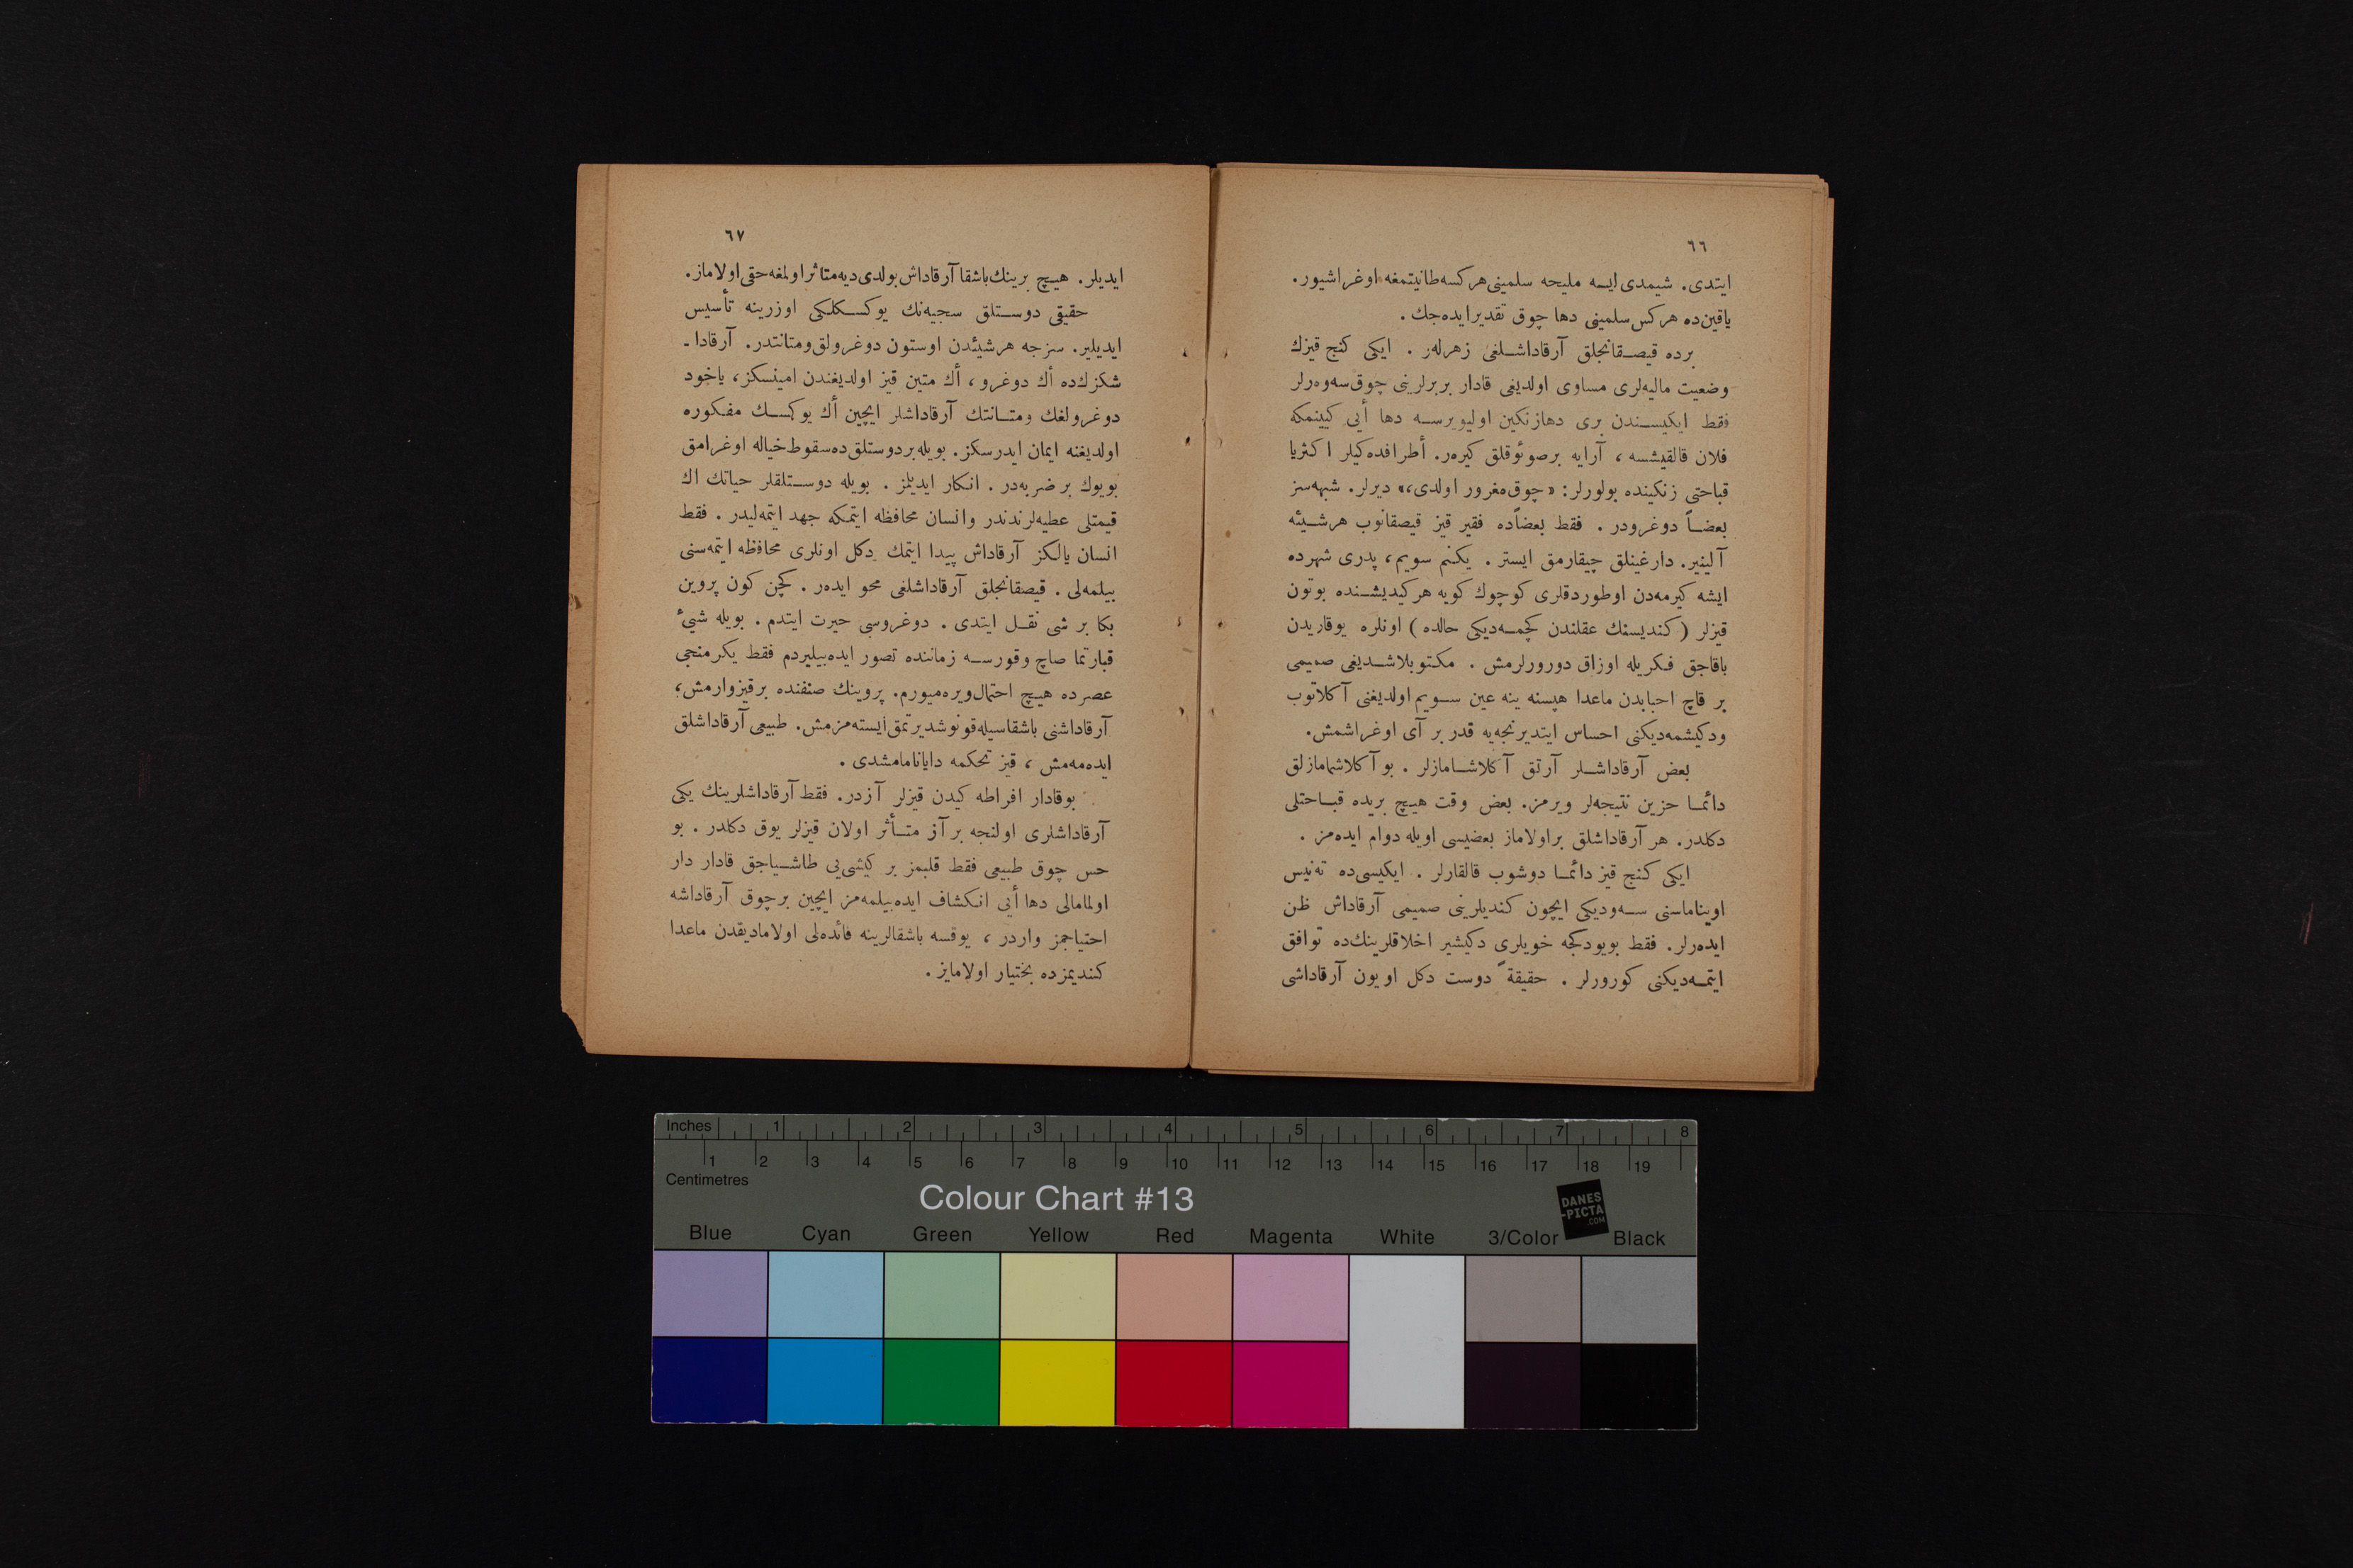 ٦٦
ايتدی. شيمدی ايسه مليحه سلمينی هركسه طانيتمغه اوغراشيور.
ياقين‌ده هركس سلمينی دها چوق تقدير ايده‌جك.
برده قيصقانجلق آرقاداشلغی زهرلەر. ايكی كنج قيزك
وضعيت ماليه‌لری مساوی اولديغی قادار بربرلرينی چوق سه‌وه‌رلر
فقط ايكيسندن بری دها زنكين اوليويرسه دها أیی كيينمكه
فلان قالقيشسه، آرايه برصوئوقلق كيره‌ر. أطرافده‌كيلر اكثريا
قباحتی زنكينده بولورلر: «چوق مغرور اولدی،» ديرلر. شبهه‌سز
بعضاً دوغرودر. فقط بعضاًده فقير قيز قيصقانوب هرشيئه
آلينير. دارغينلق چيقارمق ايستر. يكنم سويم، پدری شهرده
ايشه كيرمه‌دن اوطوردقلری كوچوك كويه هركيديشنده بوتون
قيزلر (كنديسنك عقلندن كچمه‌ديكی حالده) اونلره يوقاريدن
باقاجق فكريله اوزاق دورورلرمش. مكتوبلاشديغی صميمی
بر قاچ احبابدن ماعدا هپسنه ينه عين سويم اولديغنی آكلاتوب
ودكيشمه‌ديكنی احساس ايتديرنجه‌يه قدر بر آی اوغراشمش.
بعض آرقاداشلر آرتق آكلاشامازلر. بو آكلاشامازلق
دائما حزين نتيجه‌لر ويرمز. بعض وقت هيچ بريده قباحتلی
دكلدر. هر آرقاداشلق براولاماز بعضيسی اويله دوام ايده‌مز.
ايكی كنج قيز دائما دوشوب قالقارلر. ايكيسی‌ده ته‌نيس
اويناماسنی سه‌وديكی ايچون كنديلرينی صميمی آرقاداش ظن
ايده‌رلر. فقط بويودكجه خويلری دكيشير اخلاقلرينك‌ده توافق
ايتمه‌ديكنی كورورلر. حقيقةً دوست دكل اويون آرقاداشی
٦٧
ايديلر. هيچ برينك باشقا آرقاداش بولدی ديه متاثر اولمغه حقی اولاماز.
حقيقی دوستلق سجيه‌نك يوكسكلكی اوزرينه تأسيس
ايديلير. سزجه هرشيئدن اوستون دوغرولق ومتانتدر. آرقادا-
شكزك‌ده أك دوغرو، أك متين قيز اولديغندن امينسكز، ياخود
دوغرولغك ومتانتك آرقاداشلر ايچين أك يوكسك مفكوره
اولديغنه ايمان ايدرسكز. بويله بر دوستلق‌ده سقوط خياله اوغرامق
بويوك بر ضربه‌در. انكار ايديلمز. بويله دوستلقلر حياتك اك
قيمتلی عطيه‌لرندندر وانسان محافظه ايتمكه جهد ايتمه‌ليدر. فقط
انسان يالكز آرقاداش پيدا ايتمك دكل اونلری محافظه ايتمه‌سنی
بيلمه‌لی. قيصقانجلق آرقاداشلغی محو ايده‌ر. كچن كون پروين
بكا بر شی نقل ايتدی. دوغروسی حيرت ايتدم. بويله شیئ
قبارتما صاچ وقورسه زماننده تصور ايده‌بيليردم فقط يكرمنجی
عصرده هيچ احتمال ويره‌ميورم. پروينك صنفنده برقيز وارمش؛
آرقاداشنی باشقاسيله قونوشديرتمق ايسته‌مزمش. طبيعی آرقاداشلق
ايده‌مه‌مش، قيز تحكمه دايانامامشدی.
بوقادار افراطه كيدن قيزلر آزدر. فقط آرقاداشلرينك يكی
آرقاداشلری اولنجه بر آز متأثر اولان قيزلر يوق دكلدر. بو
حس چوق طبيعی فقط قلبمز بر كيشی‌يی طاشياجق قادار دار
اولمامالی دها أیی انكشاف ايده‌بيلمه‌مز ايچين برچوق آرقاداشه
احتياجمز واردر، يوقسه باشقالرينه فائده‌لی اولاماديقدن ماعدا
كنديمزده بختيار اولامايز.
Inches 1 2 3 4 5 6 7 8
1 2 3 4 5 6 7 8 9 10 11 12 13 14 15 16 17 18 19
Centimetres
Colour Chart #13
DANES
-PICTA
.COM
Blue Cyan Green Yellow Red Magenta White 3/Color Black